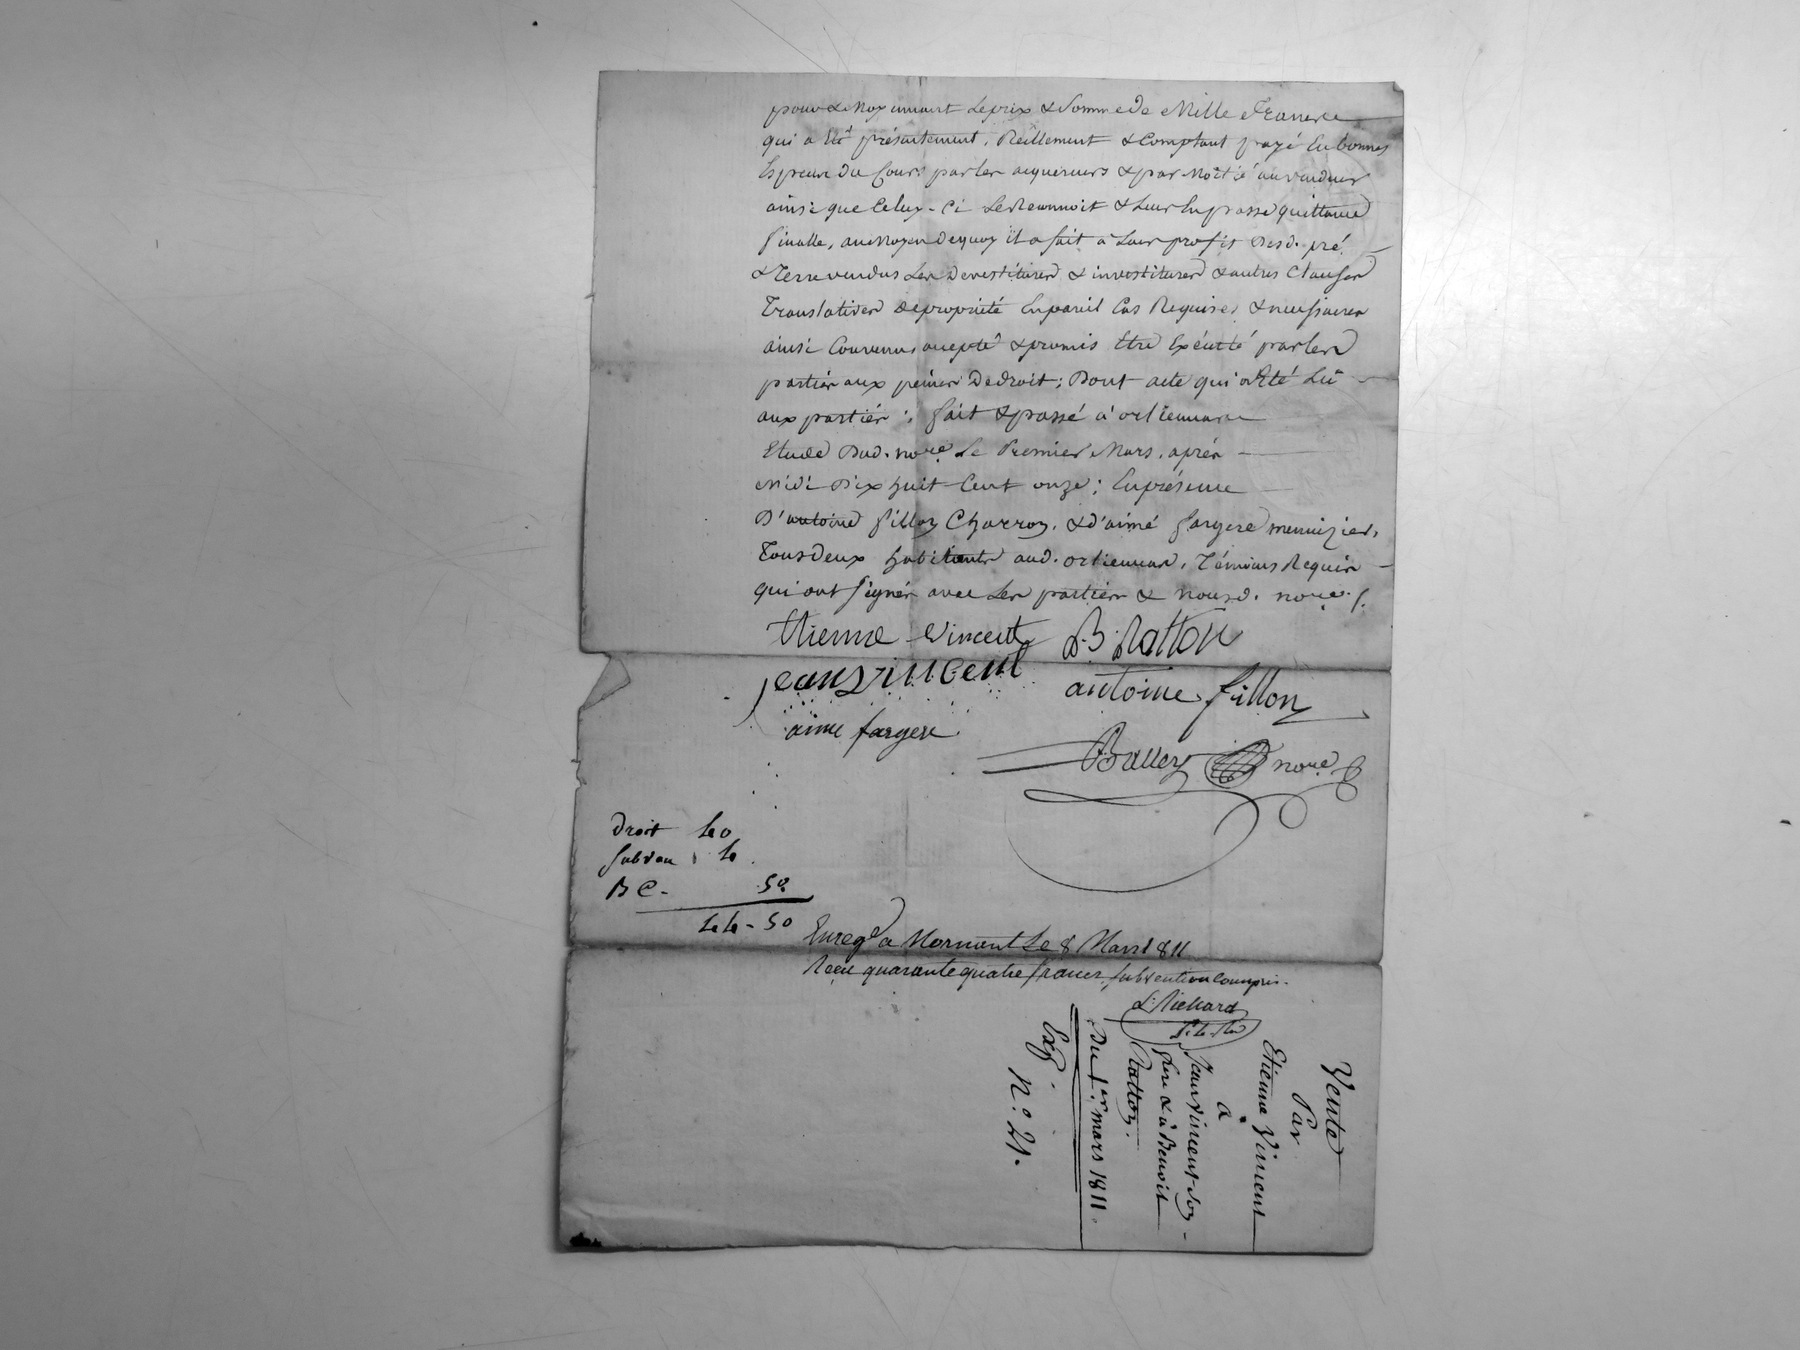 pour & moyennant le prix & somme de Mille francs
qui a été présentement, Réellement & Comptant payé En bonnes
Espèces du Cours par les acquereurs & par moitié au vendeur
ainsi que Celuy-Ci Le Reconnoit & Leur En passe quittance
finalle, au Moyen de quoy il a fait à Leur profit Desd. pré
& Terre vendus Les Devestitures & investitures & autres Clauses
Translatives de propriété En pareil Cas Requises & necessaires
ainsi Convenu, accepté & promis Etre Exécuté par les
parties aux peines De droit ; Dont acte qui a Eté Lû
aux parties ; fait & passé à orlienna
Etude Dud. no.re Le Premier Mars, après
Midi Dix huit Cent onze ; En présence
D'antoine fillon Charron, & d'aimé fargere menuizier,
Tous Deux habitants aud. orlienna, Témoins Requis
qui ont signés avec Les parties & Nousd. no.re
Etienne Vincent B. Ratton
jean Vincent antoine fillon
aime fargere
no.re
Droit 40
Subvon 4
B C - 50
44 - 50
Enregé a Mornant Le 8 Mars 1811
Reçu quarante quatre francs, subvention Compris.
Richard
Vente
Par
Etienne Vincent
a
Jean Vincent Son
frere & à Benoit
Ratton.
Du 1er mars 1811.
Exp.
N.o 21.